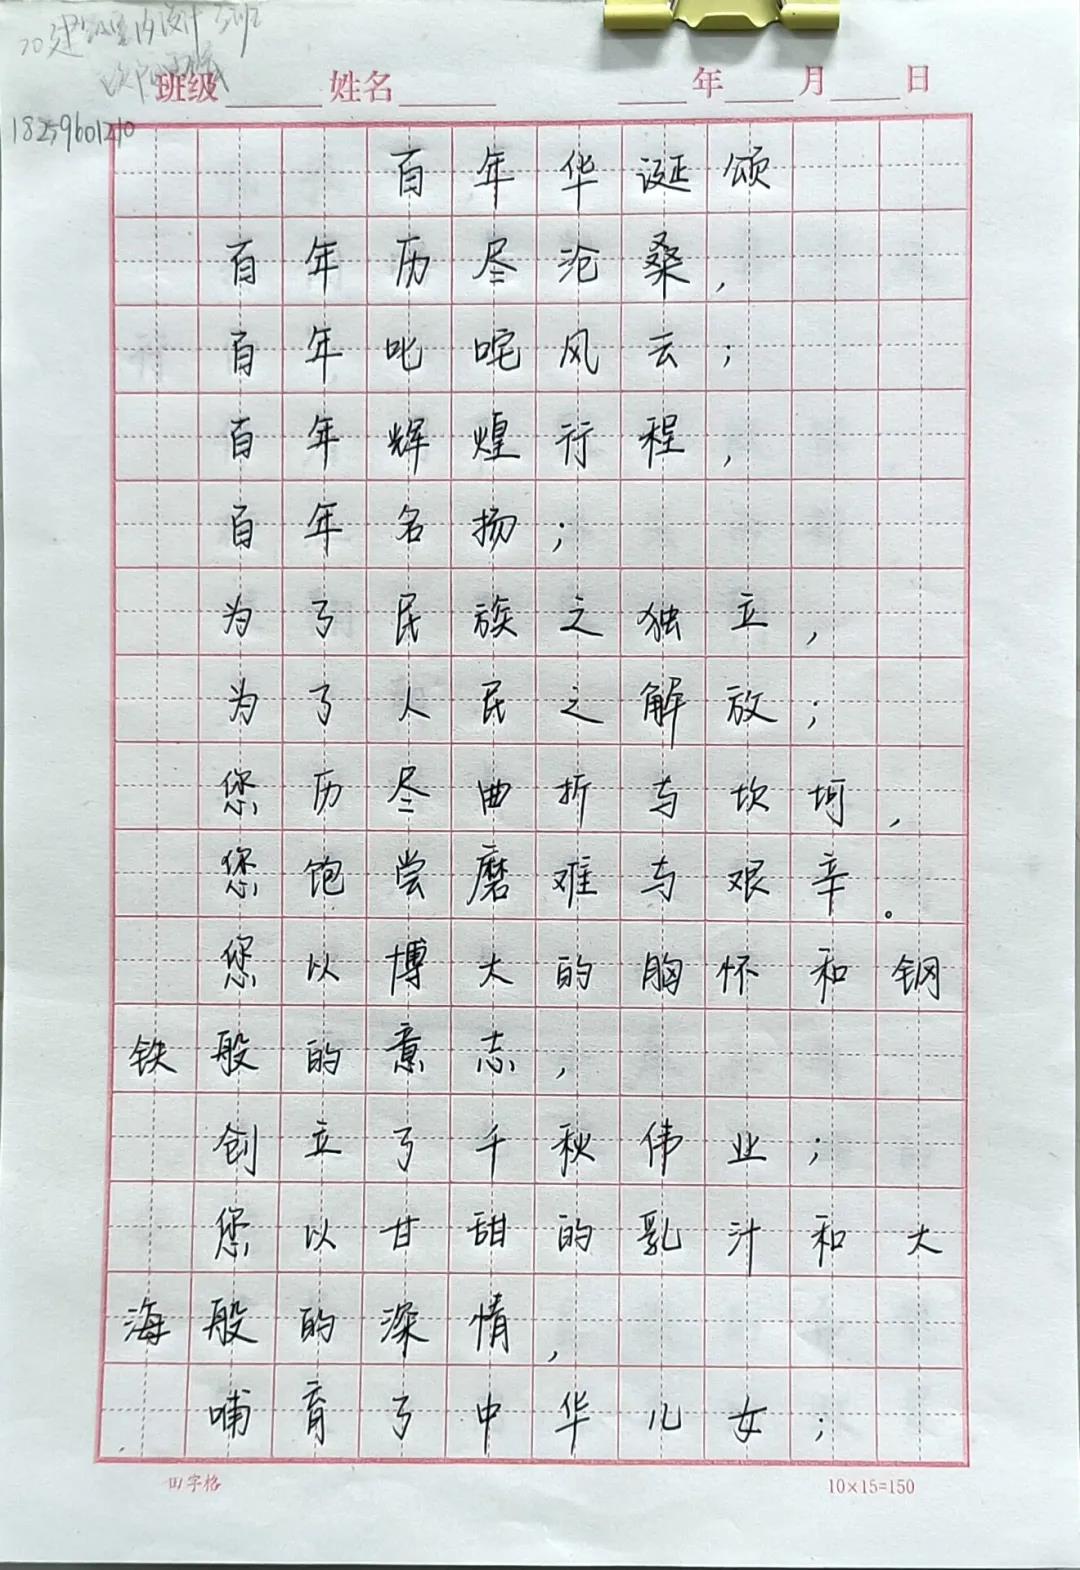 班级 姓名 年 月 日
百年华诞颂
百年历尽沧桑，
百年叱咤风云；
百年辉煌行程，
百年名扬；
为了民族之独立，
为了人民之解放；
您历尽曲折与坎坷，
您饱尝磨难与艰辛。
您以博大的胸怀和钢
铁般的意志，
创立了千秋伟业；
您以甘甜的乳汁和大
海般的深情，
哺育了中华儿女；
田字格 10×15=150